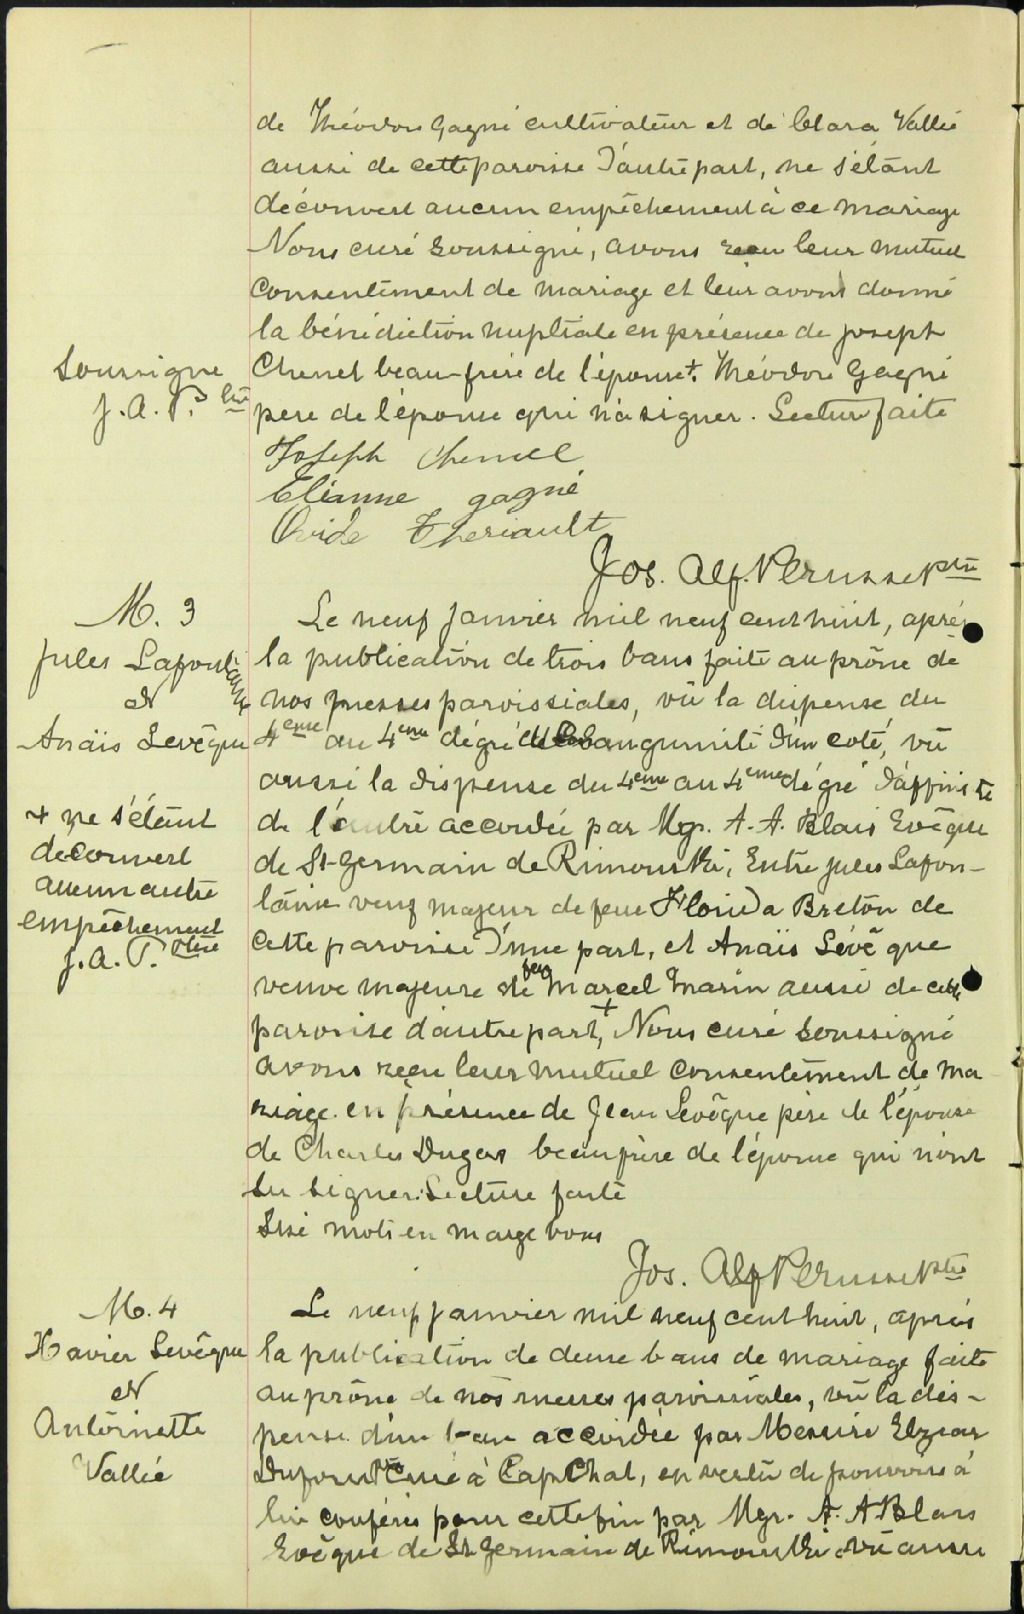 de Théodore Gagné cultivateur et de Clara Vallée
aussi de cette paroisse d'autre part, ne s'étant
découvert aucun empêchement à ce mariage
Nous curé soussigné, avons reçu leur mutuel
consentement de mariage et leur avons donné
la bénédiction nuptiale en présence de Joseph
Soussigné
J. A. P. ptre
Chenel beau-frère de l'époux et Théodore Gagné
père de l'épouse qui n'a signer. Lecture faite
Joseph Chenel
Elianne gagné
Ovide Theriault
Jos. Alf. Perusse Ptre
M. 3
Jules Lafontaine
et
Anaïs Levêque
+ ne s'étant
découvert
aucun autre
empêchement
J. A. P. ptre
Le neuf Janvier mil neuf cent huit, après
la publication de trois bans faite au prône de
nos messes paroissiales, vû la dispense du
4eme au 4eme dégré de Consanguinité d'un coté, vû
aussi la dispense du 4eme au 4eme dégré d'affinité
de l'autre accordée par Mgr. A. A. Blais Evêque
de St-Germain de Rimouski, Entre Jules Lafon-
taine veuf majeur de feue Florida Breton de
cette paroisse d'une part, et Anaïs Lévêque
veuve majeure de feu Marcel Marin aussi de cette
paroisse d'autre part,+ Nous curé soussigné
avons reçu leur mutuel consentement de ma
riage en présence de Jean Levêque père de l'épouse
de Charles Dugas beaufrère de l'épouse qui n'ont
su signer. Lecture faite
Sise mots en marge bons
Jos. Alf Perusse Ptre
M. 4
Xavier Levêque
et
Antoinette
Vallée
Le neuf janvier mil neuf cent huit, après
la publication de deux bans de mariage faite
au prône de nos messes paroissiales, vû la dis-
pense d'un ban accordée par Messire Elzear
Dufour Ptre Curé à Cap Chat, en vertu de pouvoirs à
lui conférés pour cette fin par Mgr. A. A Blais
Evêque de St Germain de Rimouski vû aussi